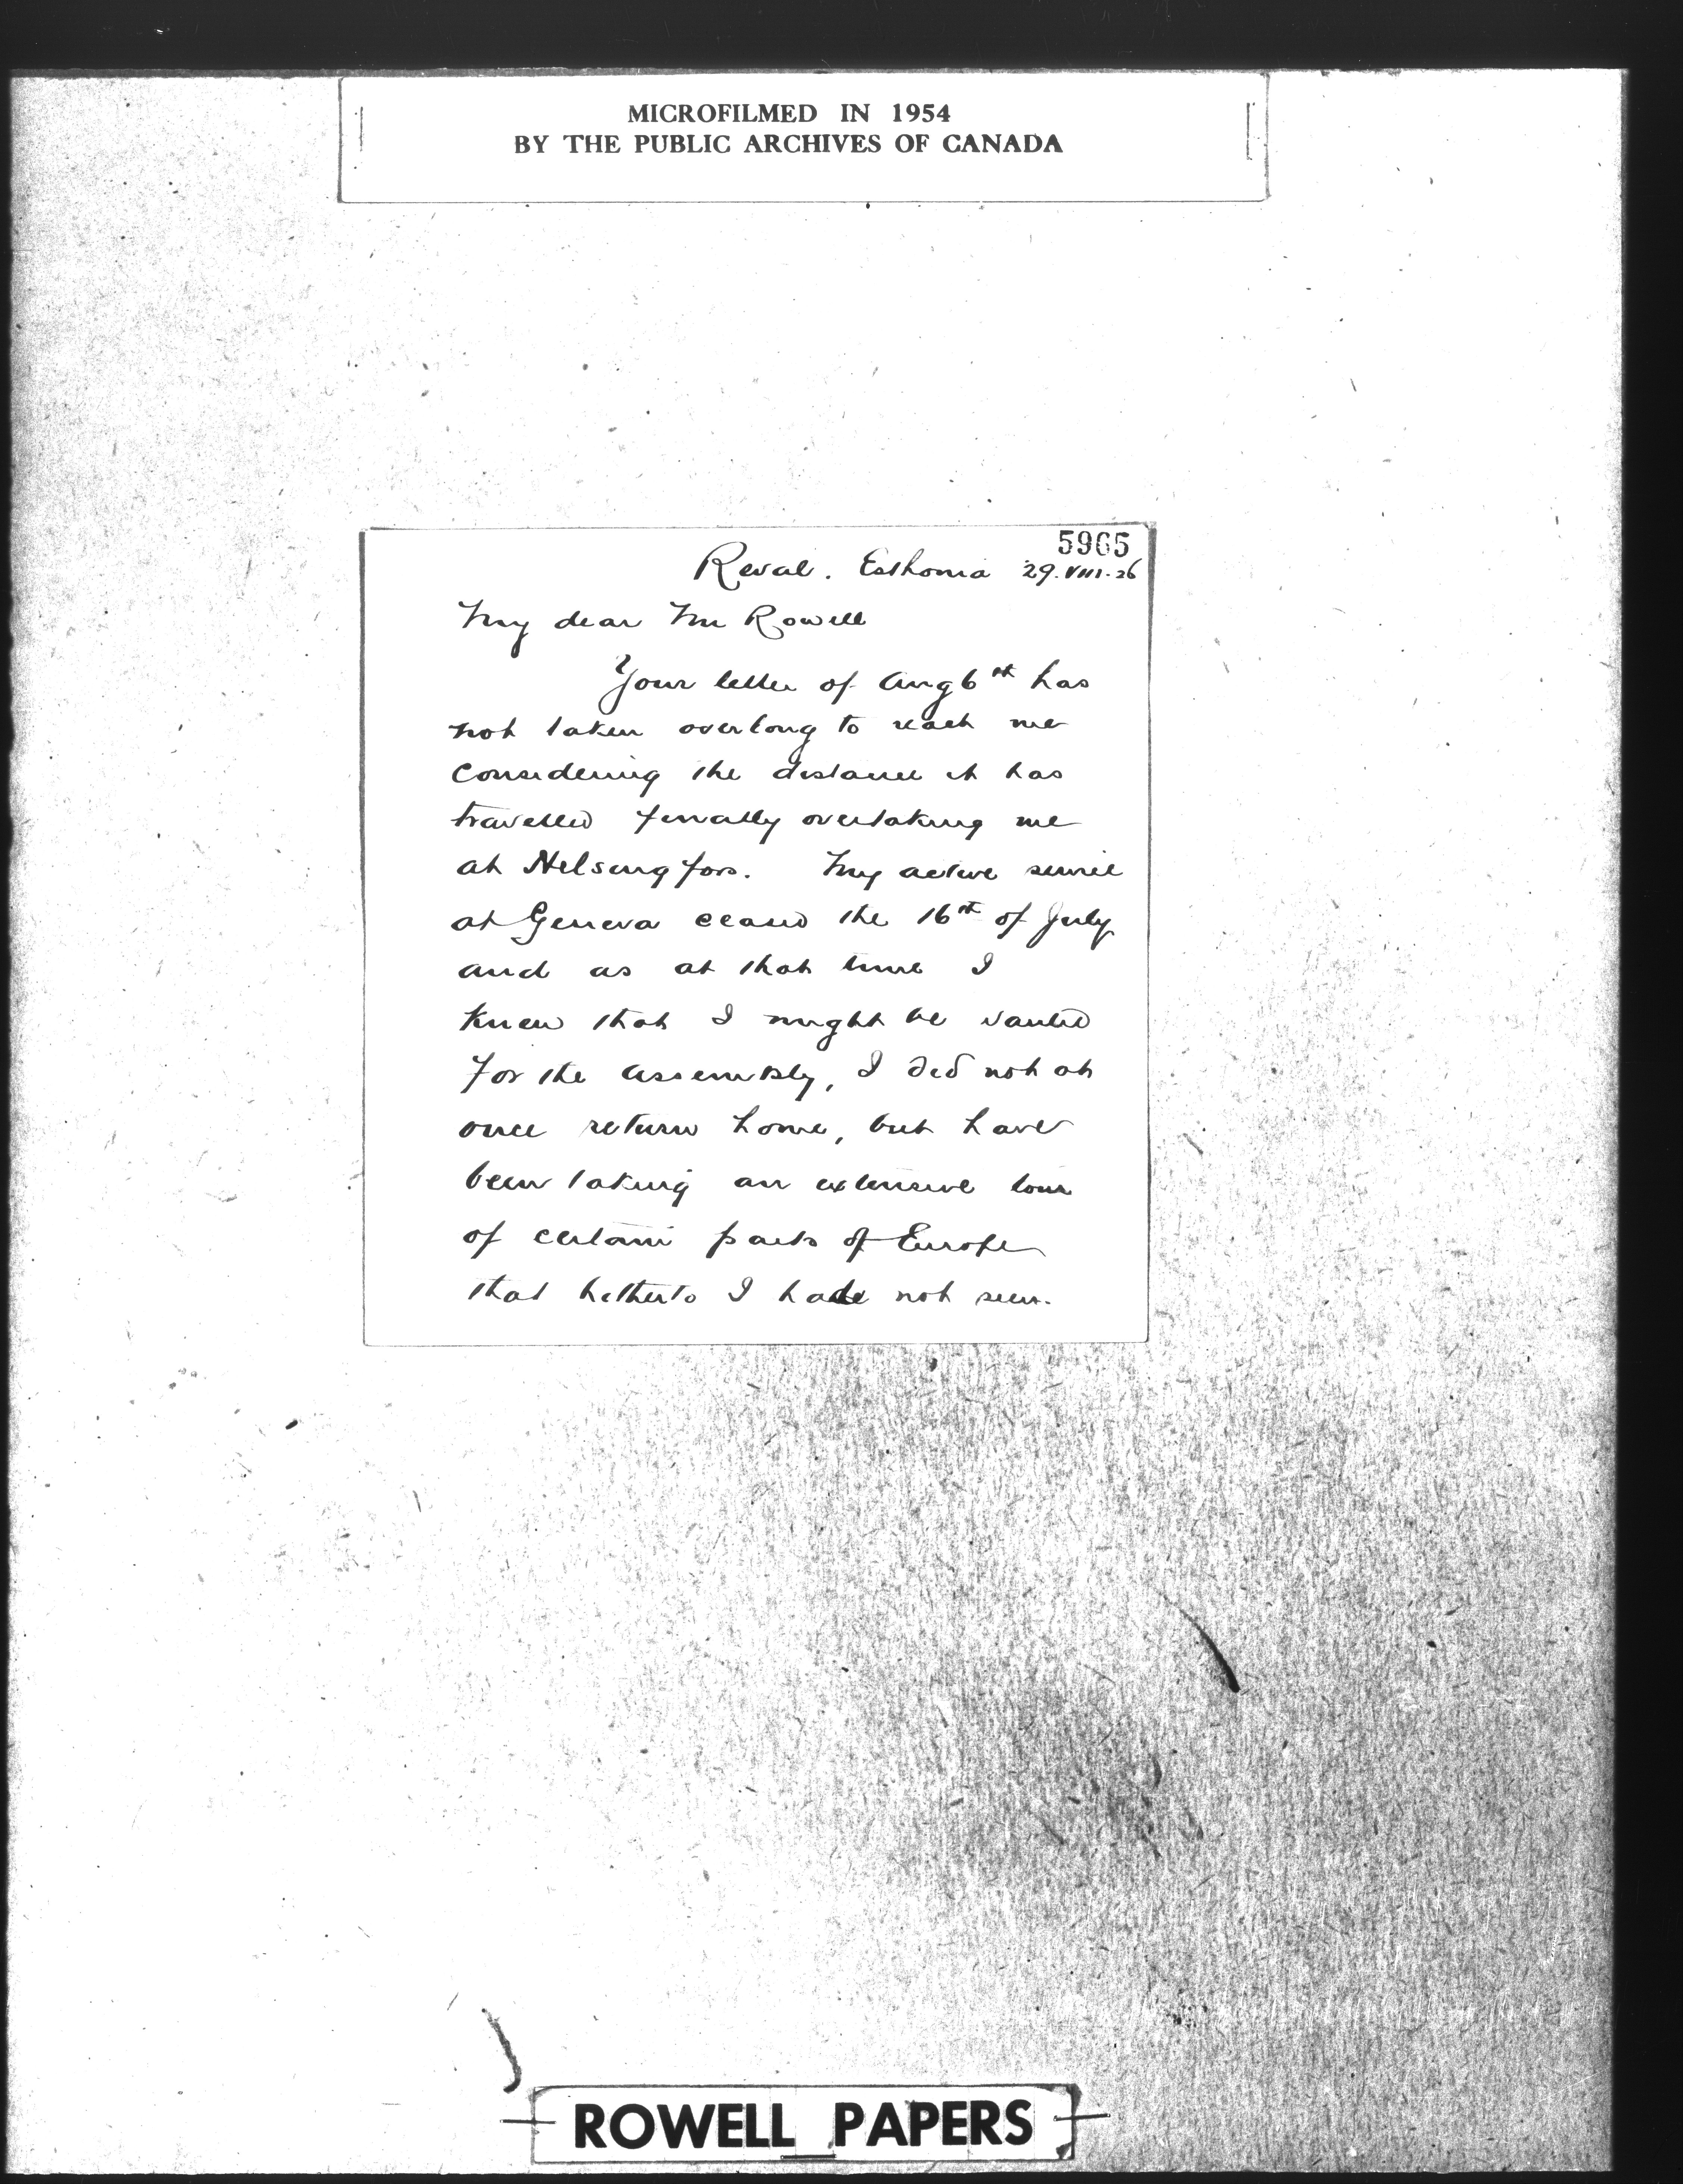 MICROFILMED IN 1954
BY THE PUBLIC ARCHIVES OF CANADA
5965
Reval. Esthonia 29.VIII.26
My dear Mr Rowell
Your letter of Aug 6th has
not taken overlong to reach me
considering the distance it has
travelled finally overtaking me
at Helsingfors. My active service
at Geneva ceased the 16th of July
and as at that time I
knew that I might be wanted
for the assembly, I did not at
once return home, but have
been taking an extensive tour
of certain parts of Europe
that hitherto I had not seen.
ROWELL PAPERS